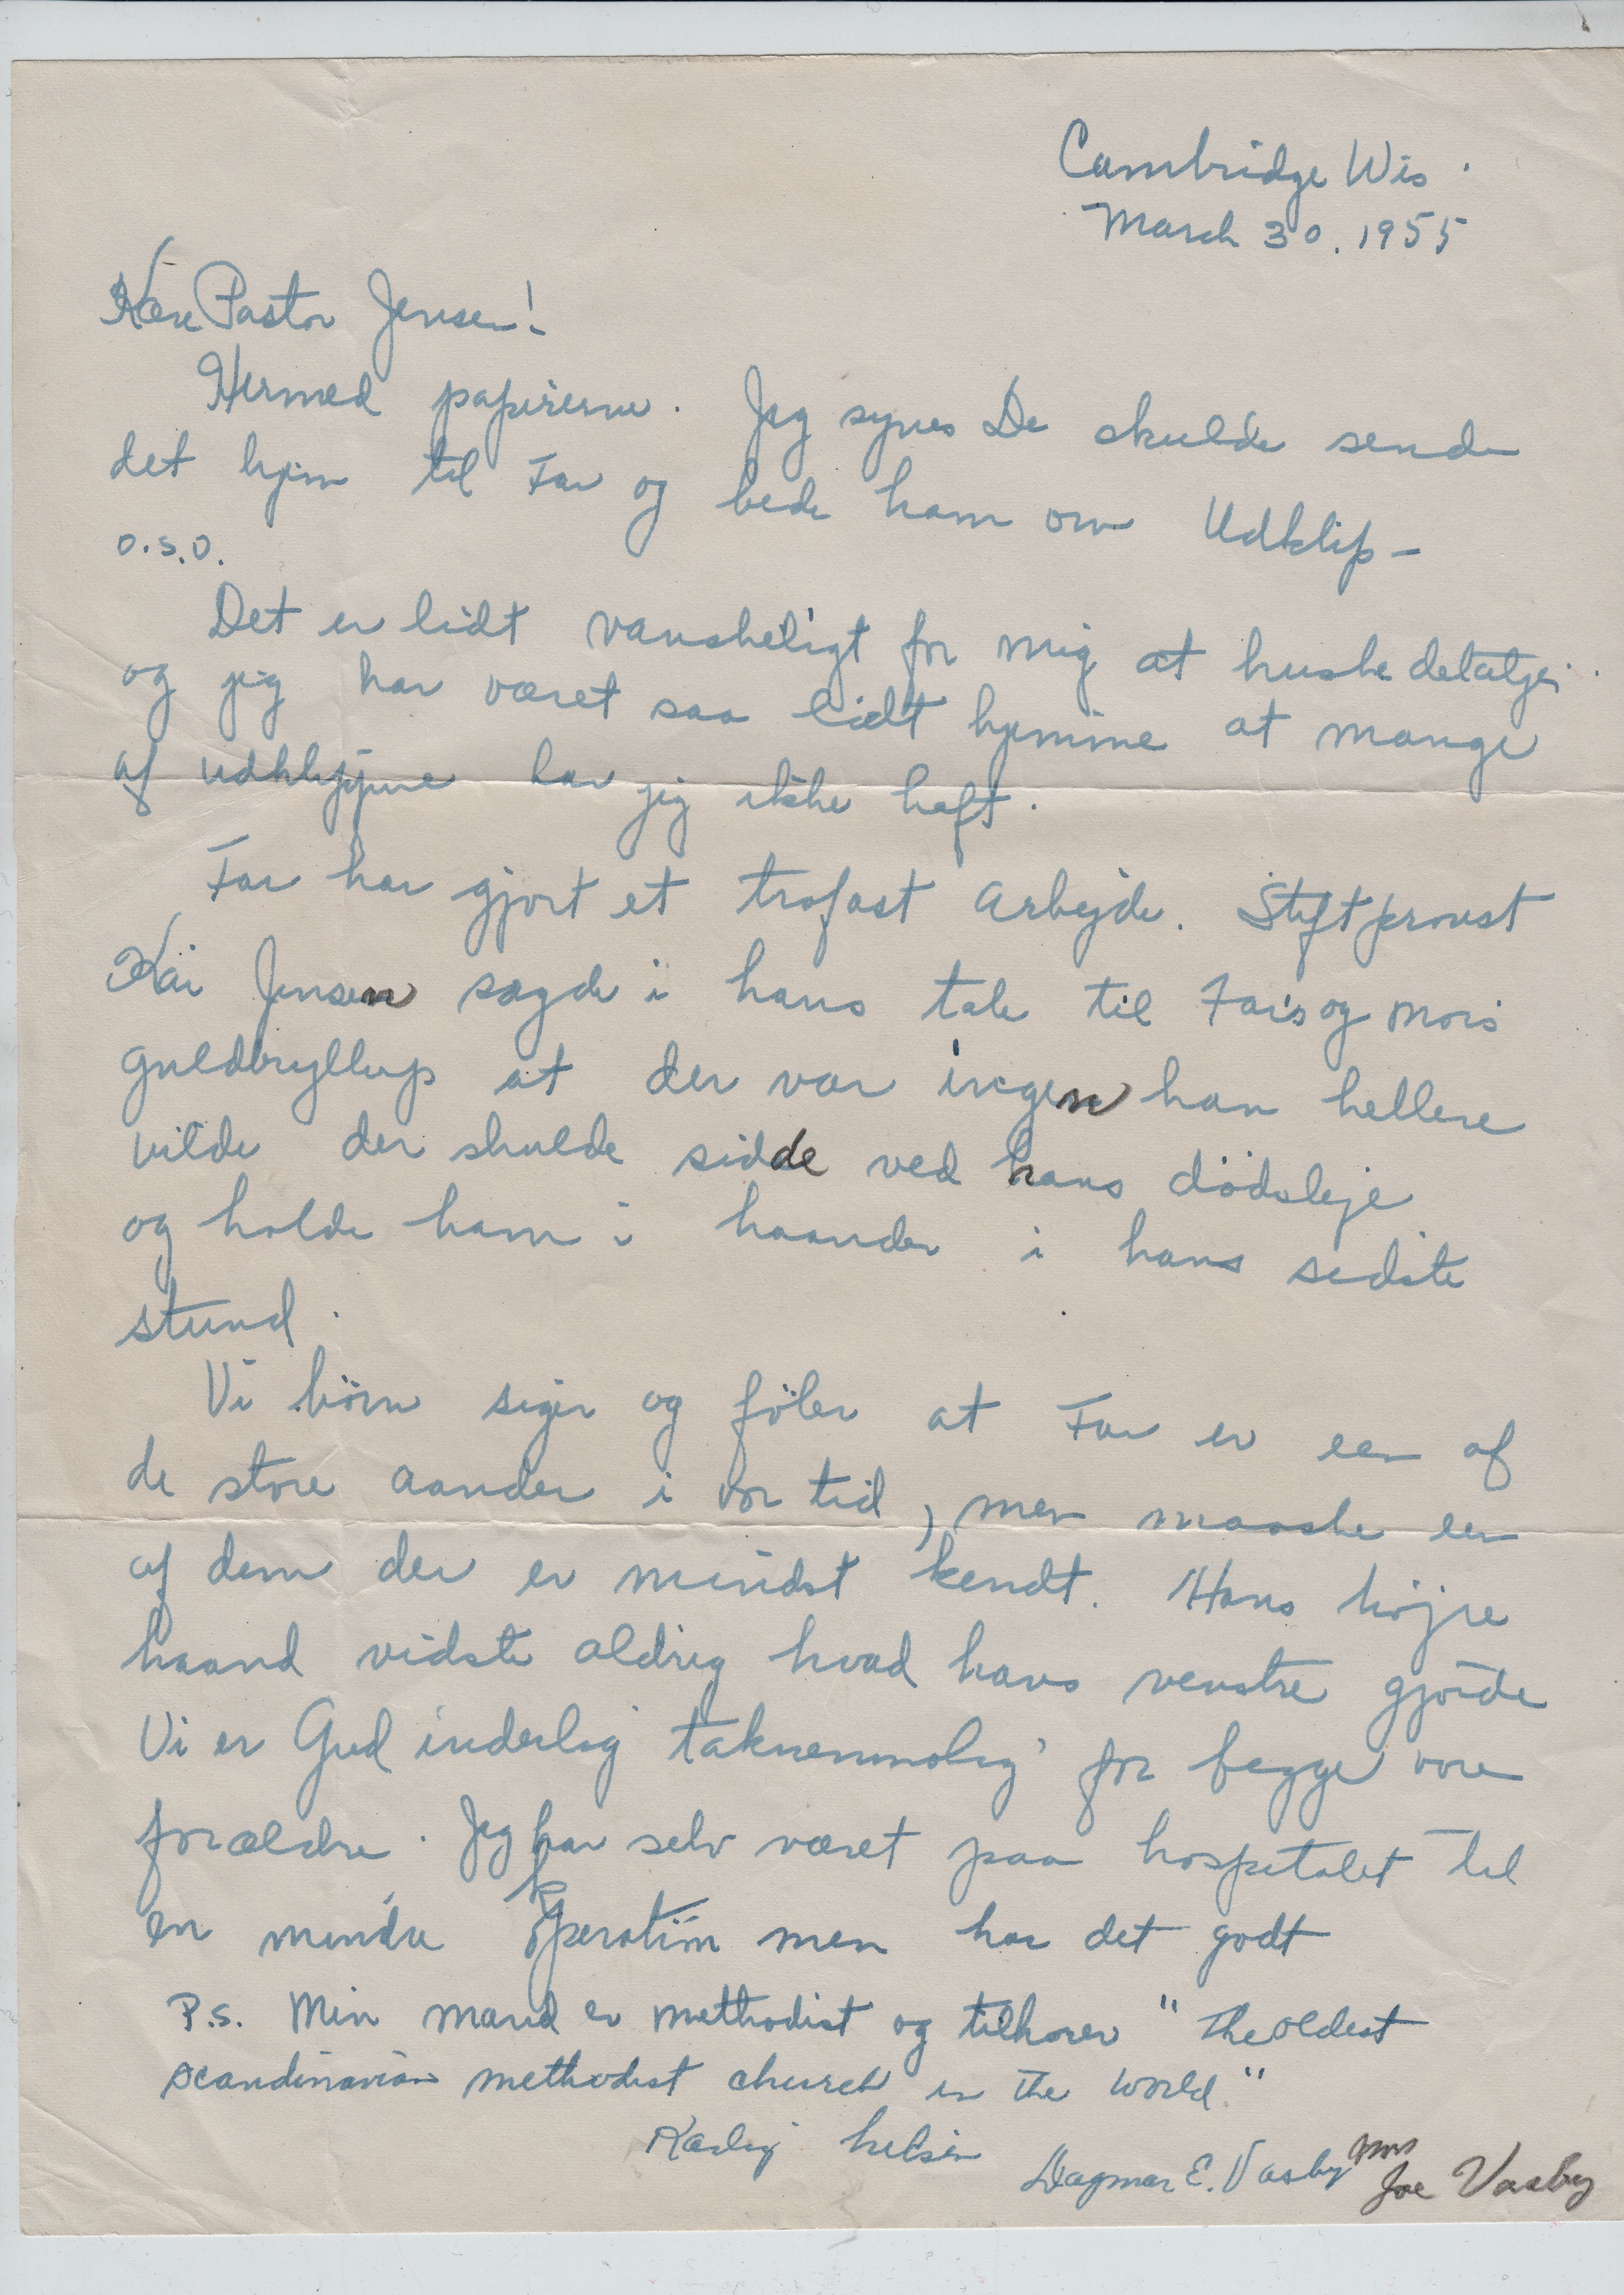 Cambridge Wis.
March 30. 1955
Kære Pastor Jensen!
Hermed papirerne. Jeg synes De skulde sende
det hjem til Far og bede ham om Udklip –
o.s.v.
Det er lidt vanskeligt for mig at huske detaljer
og jeg har været saa lidt hjemme at mange
af udklippene har jeg ikke haft.
Far har gjort et trofast Arbejde. Stiftprovst
Kai Jensen sagde i hans tale til Far's og Mors
Guldbryllup at der var ingen han hellere
vilde der skulde sidde ved hans dödsleje
og holde ham i haanden i hans sidste
stund.
Vi börn siger og föler at Far er een af
de store aander i vor tid, men maaske een
af dem der er mindst kendt. Hans höjre
haand vidste aldrig hvad hans venstre gjorde
Vi er Gud inderlig taknemmelig for begge vore
forældre. Jeg har selv været paa hospitalet til
en mindre operation men har det godt
P.S. Min mand er methodist og tilhører "The oldest
scandinavian methodist church in the world."
Kærlig hilsen
Dagmar E. Vasby Mrs Joe Vasby